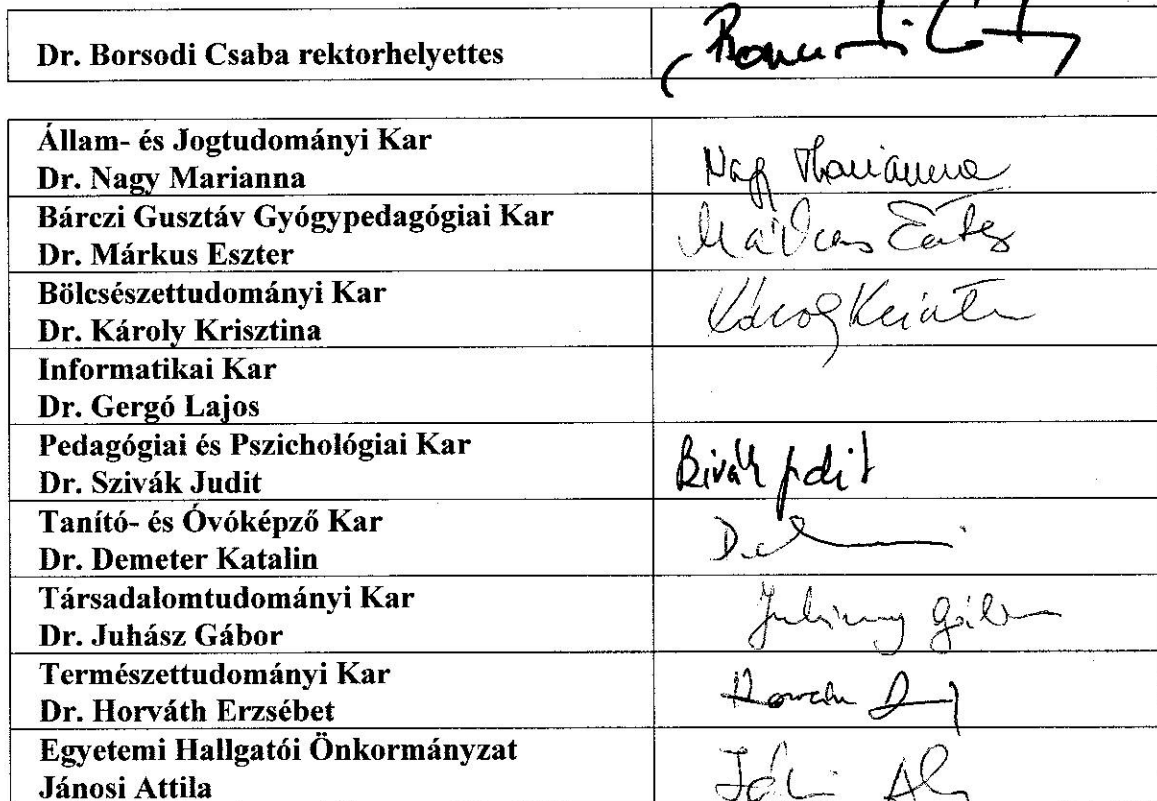 Dr. Borsodi Csaba rektorhelyettes
Állam- és Jogtudományi Kar
Dr. Nagy Marianna
Nagy Marianna
Bárczi Gusztáv Gyógypedagógiai Kar
Dr. Márkus Eszter
Márkus Eszter
Bölcsészettudományi Kar
Dr. Károly Krisztina
Károly Kriszti
Informatikai Kar
Dr. Gergó Lajos
Pedagógiai és Pszichológiai Kar
Dr. Szivák Judit
Szivák Judit
Tanító- és Óvóképző Kar
Dr. Demeter Katalin
Társadalomtudományi Kar
Dr. Juhász Gábor
Juhász Gábor
Természettudományi Kar
Dr. Horváth Erzsébet
Egyetemi Hallgatói Önkormányzat
Jánosi Attila